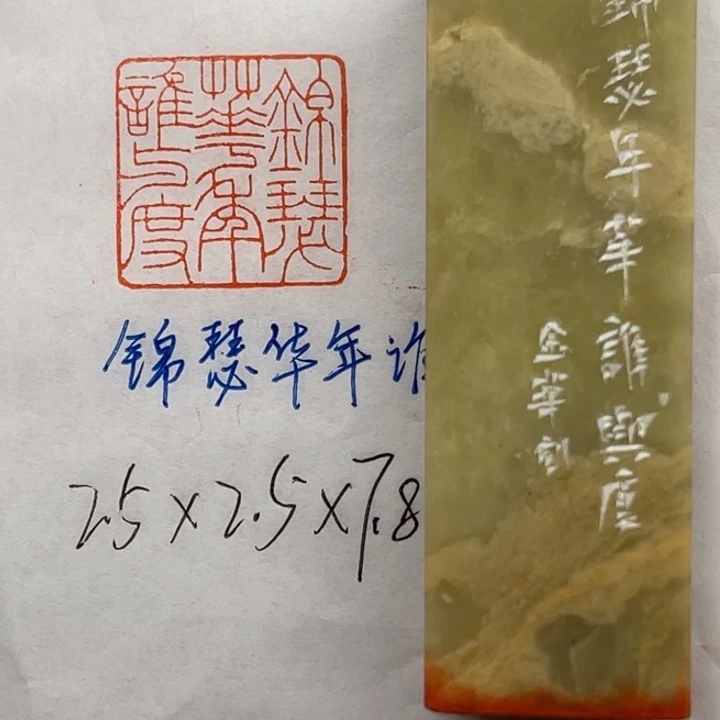 錦瑟
華年
誰与度
锦瑟华年谁
2.5×2.5×7.8
錦瑟年華誰與度
金華刻